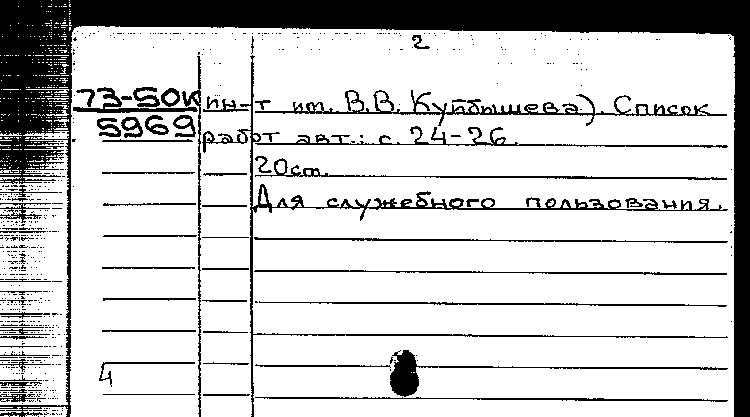 2
73-50к ин-т им. В.В. Куйбышева). Список
5969 работ авт.: с. 24-26.
20см.
Для служебного пользования.
4